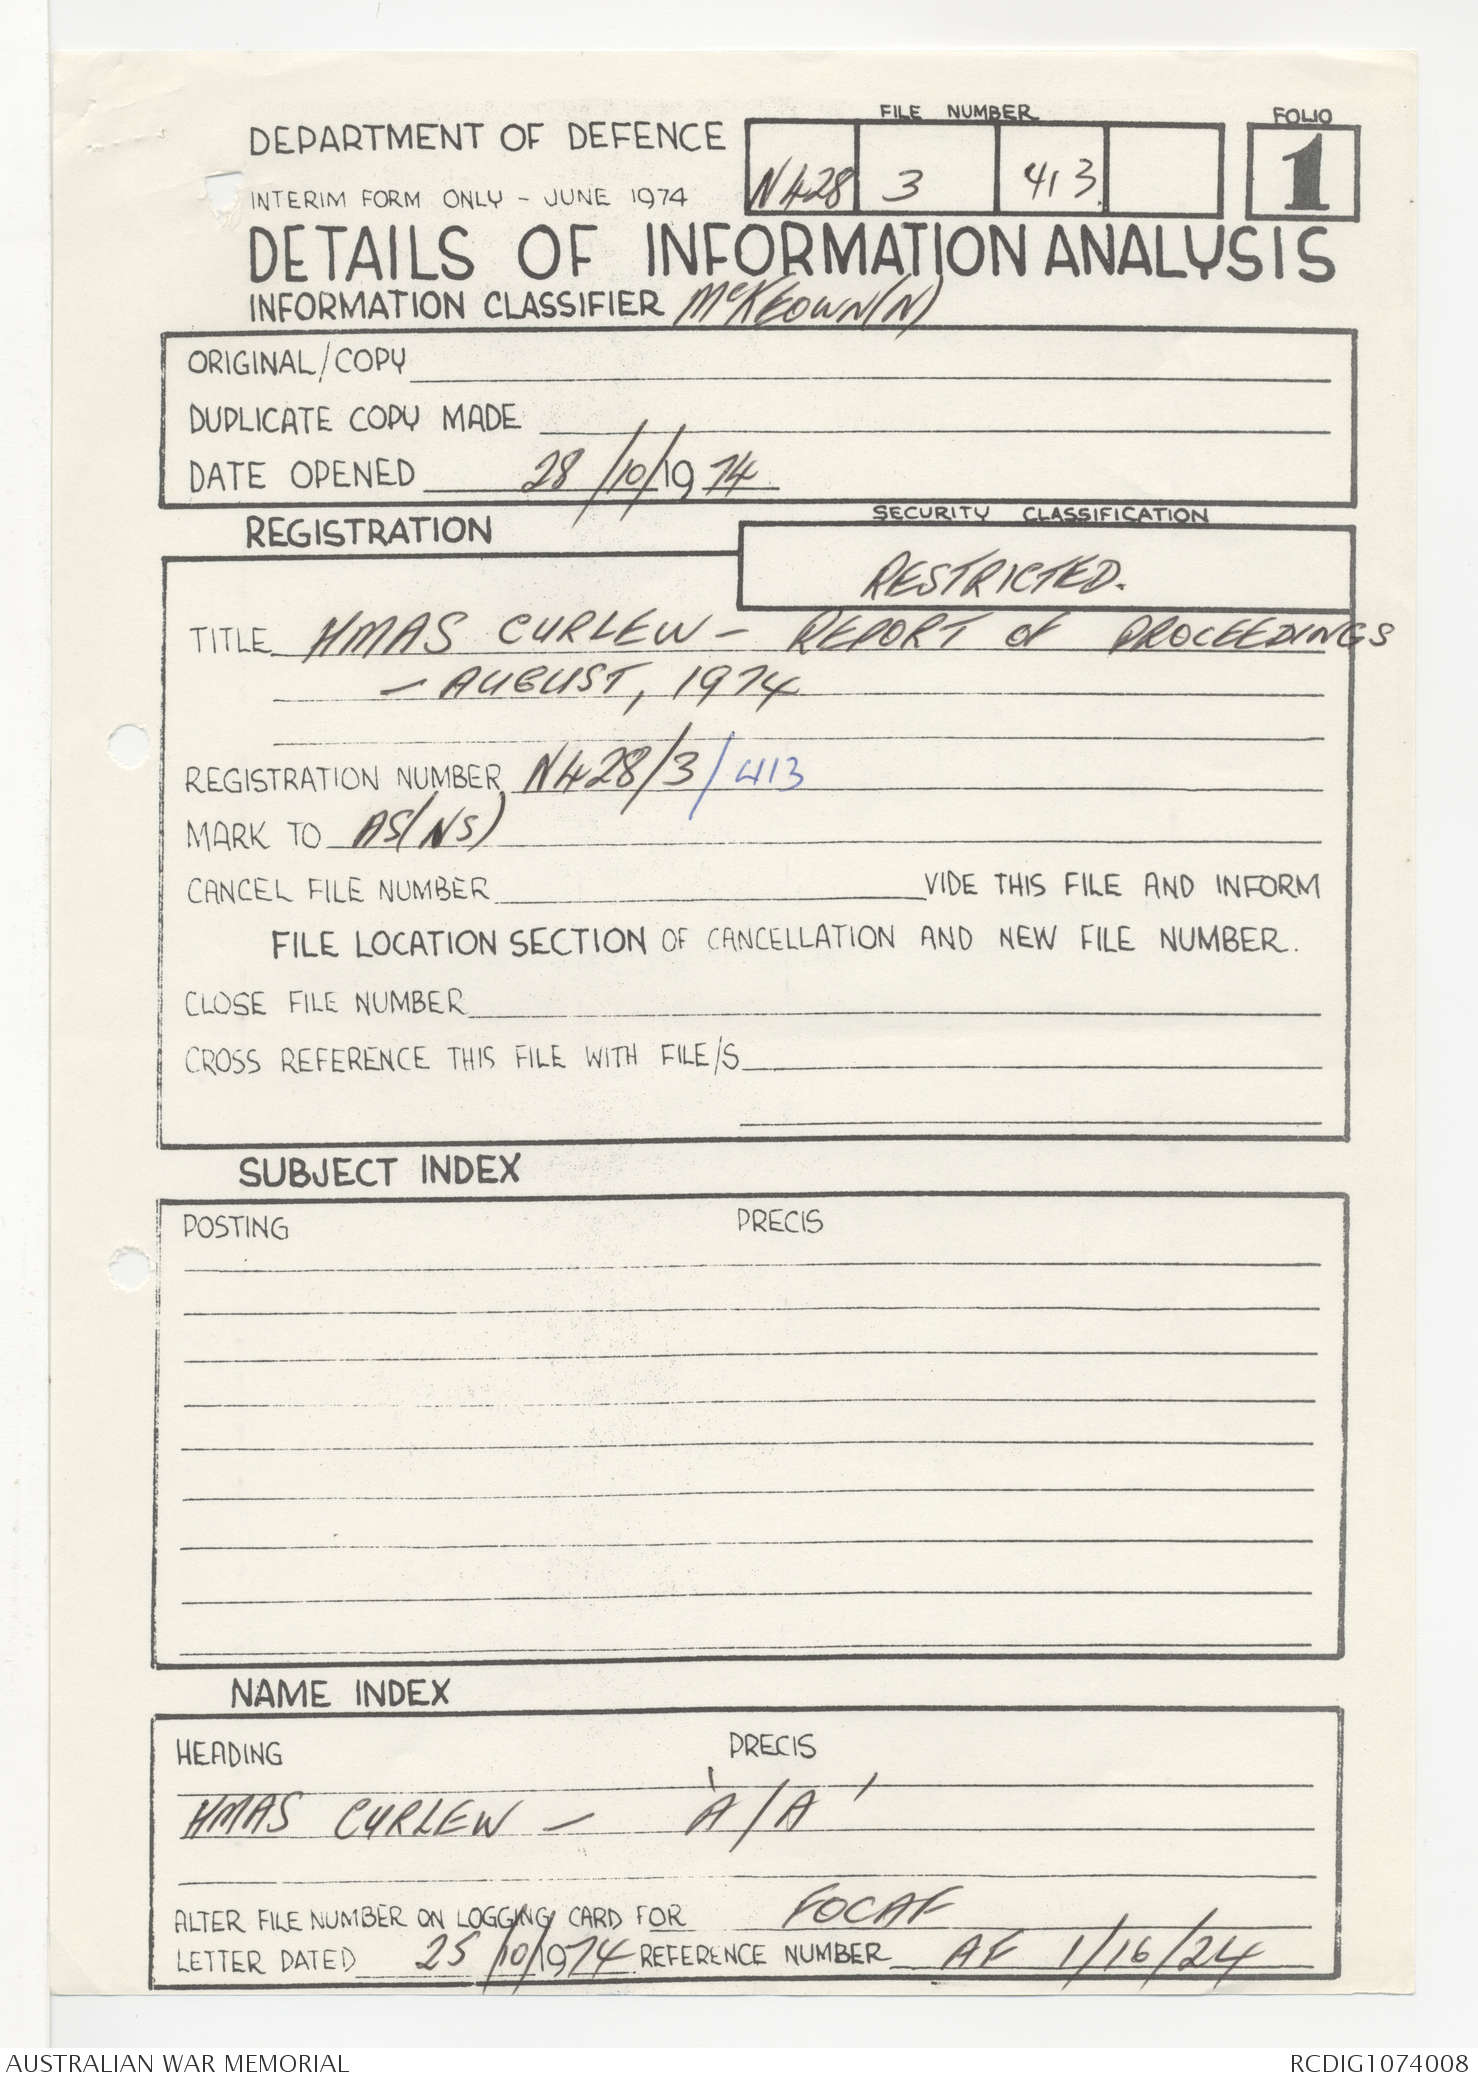 DEPARTMENT OF DEFENCE
FILE NUMBER
FOLIO
N428 3 413. 1
INTERIM FORM ONLY - JUNE 1974
DETAILS OF INFORMATION ANALYSIS
INFORMATION CLASSIFIER McKEOWN(N)
ORIGINAL/COPY
DUPLICATE COPY MADE
DATE OPENED 28/10/1974.
REGISTRATION
SECURITY CLASSIFICATION
RESTRICTED.
TITLE HMAS CURLEW - REPORT OF PROCEEDINGS
- AUGUST, 1974
REGISTRATION NUMBER N428/3/413
MARK TO AS(NS)
CANCEL FILE NUMBER VIDE THIS FILE AND INFORM
FILE LOCATION SECTION OF CANCELLATION AND NEW FILE NUMBER.
CLOSE FILE NUMBER
CROSS REFERENCE THIS FILE WITH FILE/S
SUBJECT INDEX
POSTING PRECIS
NAME INDEX
HEADING PRECIS
HMAS CURLEW - 'A/A'
ALTER FILE NUMBER ON LOGGING CARD FOR FOCAF
LETTER DATED 25/10/1974 REFERENCE NUMBER AF 1/16/24
AUSTRALIAN WAR MEMORIAL
RCDIG1074008